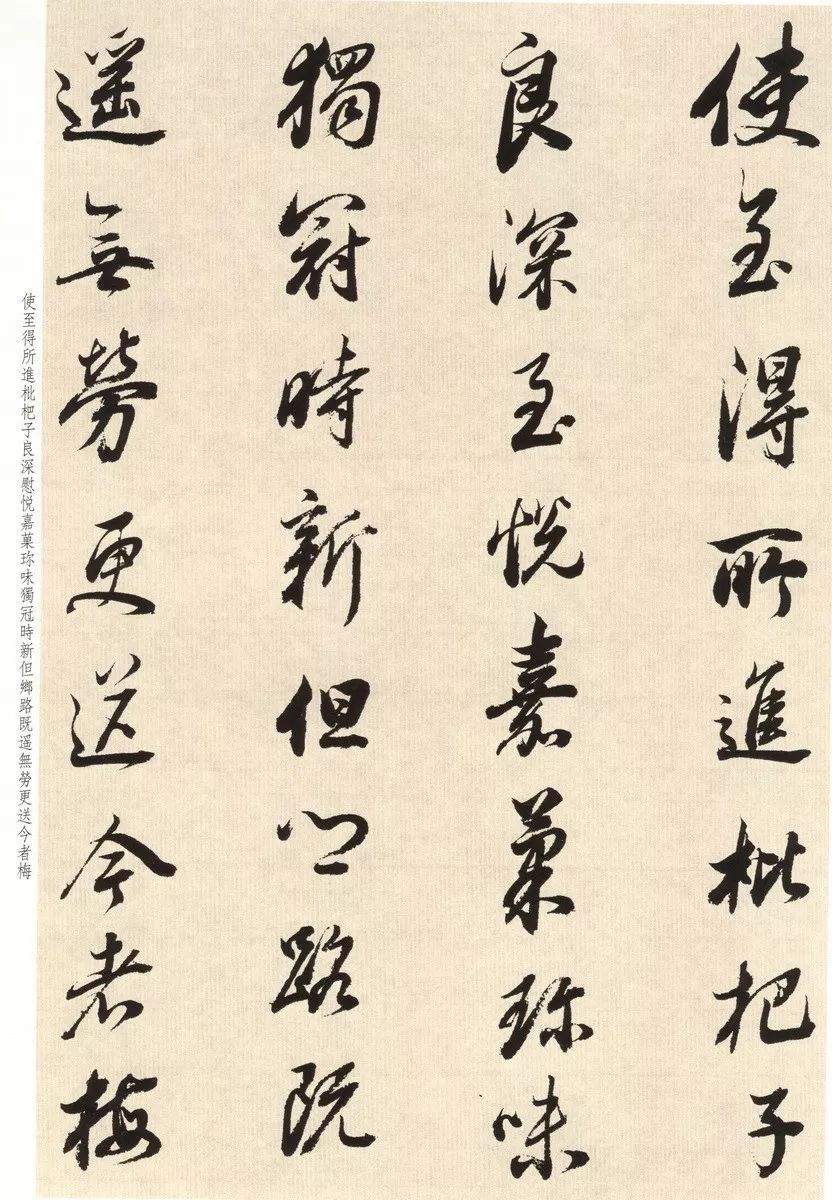 使至得所進枇杷子
良深至悅嘉菓珎味
獨冠時新但鄉路既
遥無勞更送今者梅
使至得所進枇杷子良深慰悦嘉菓珎味獨冠時新但鄉路既遥無勞更送今者梅